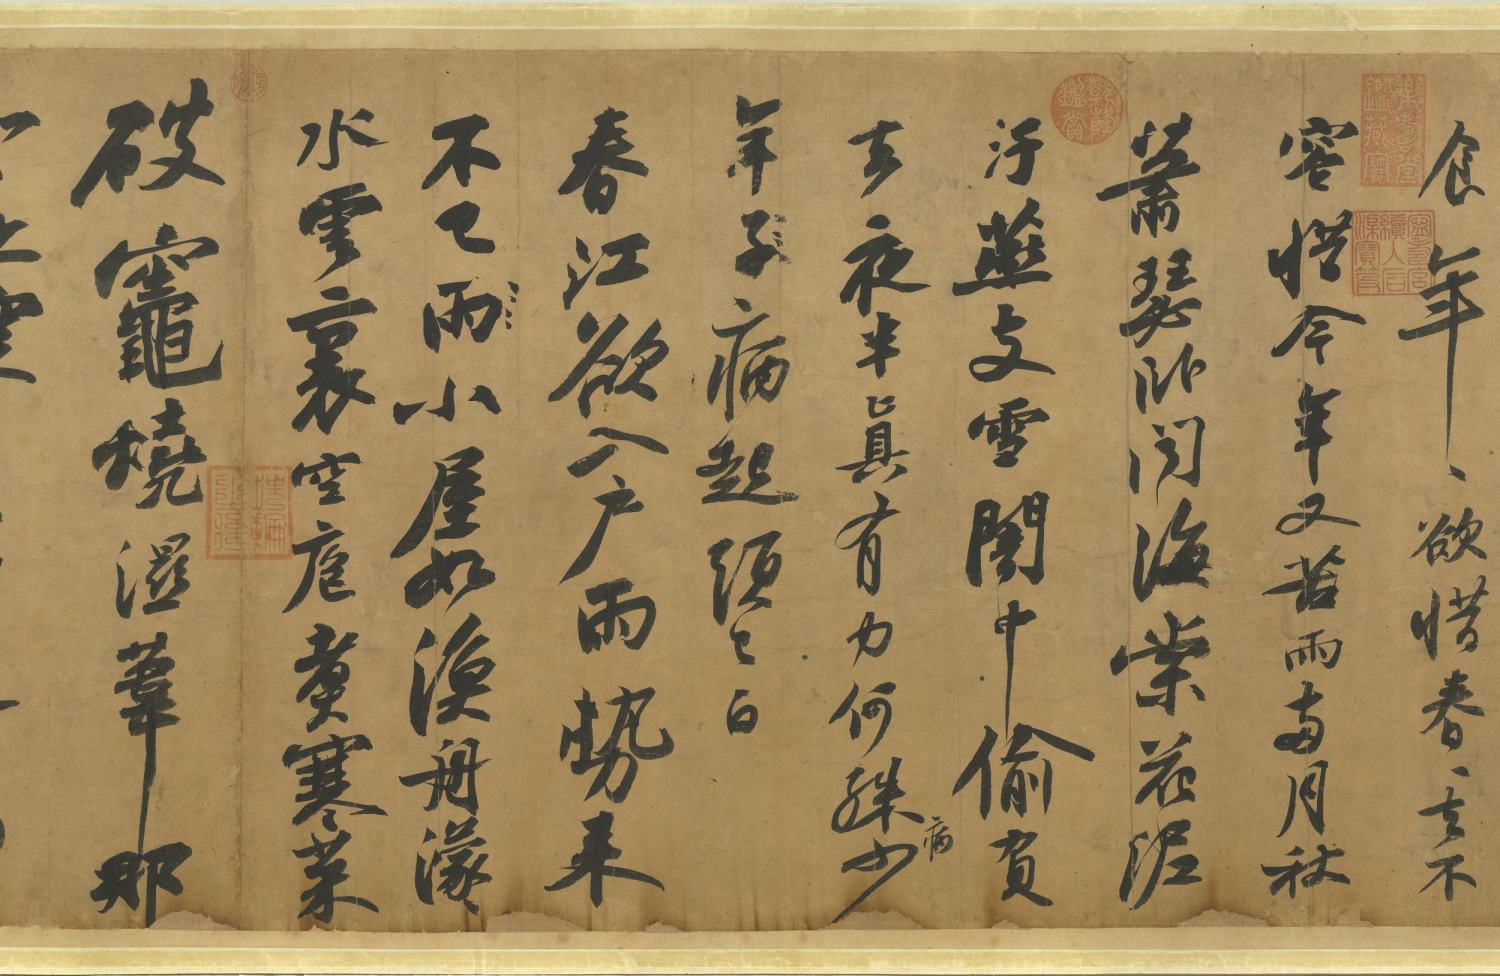 食年、欲惜春、去不
容惜今年又苦雨兩月秋
蕭瑟卧聞海棠花泥
汙燕支雪闇中偷負
去夜半真有力何殊少
病
年子病起頭已白
春江欲入户雨勢來
不已雨小屋如漁舟濛
水雲裏空庖煮寒菜
破竈燒濕葦那
樂壽堂鑑藏寶
乾隆鑑賞